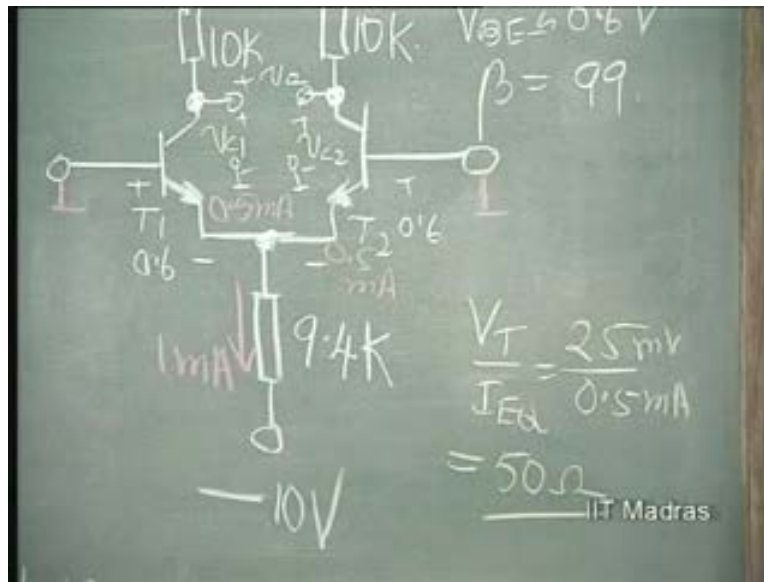 10K
10K.
VBE ≈ 0.6 V
β = 99
+ V0 -
+ +
VC1
VC2
+ +
T1
0.5mA
T2
0.6
0.6 -
- 0.5
mA
1mA
9.4K
VT / IEQ = 25mV / 0.5mA
= 50Ω
-10V
IIT Madras